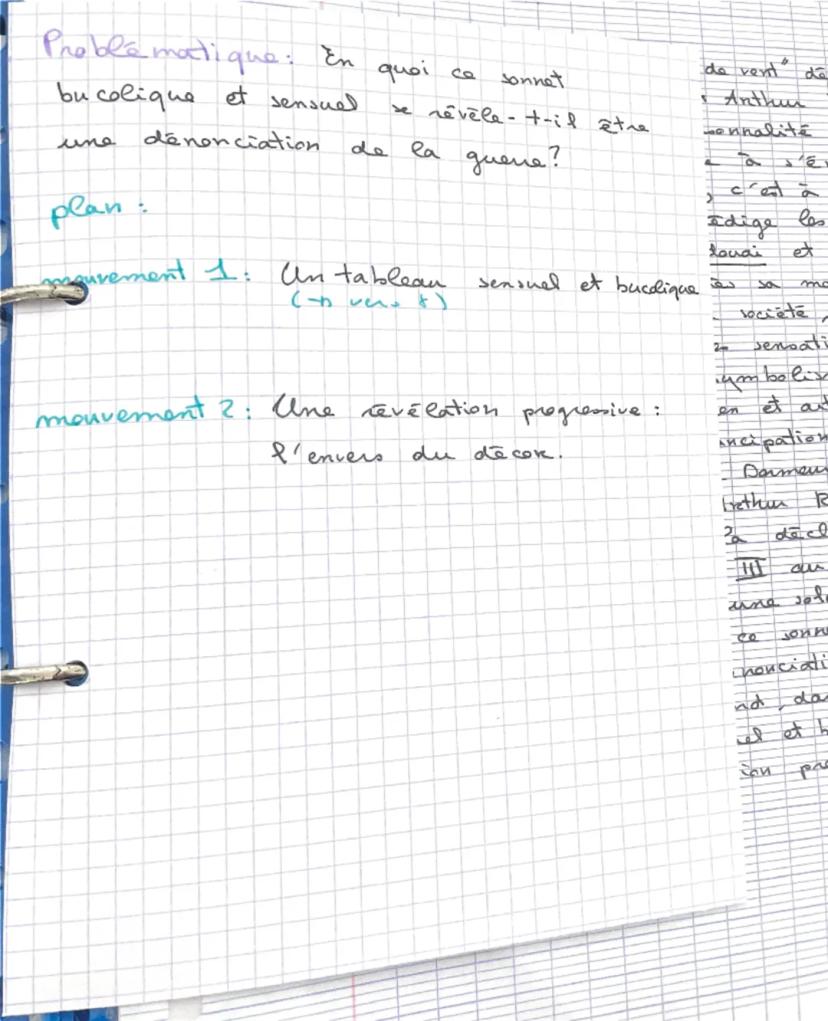 Problématique: En quoi ce sonnet
bucolique et sensuel se révèle-t-il être
une dénonciation de la guerre?
plan:
mouvement 1: Un tableau sensuel et bucolique
(→ vers 8)
mouvement 2: Une révélation progressive:
l'envers du décor.
de vent" dé
Arthur
sonnalité
à s'é
, c'est à
rédige les
Douai et
sa
société,
sensati
symbolis
en et
ncipation
Dormeur
Arthur R
décl
III au
une
ce sonn
nonciati
nd, da
el et b
ion pro